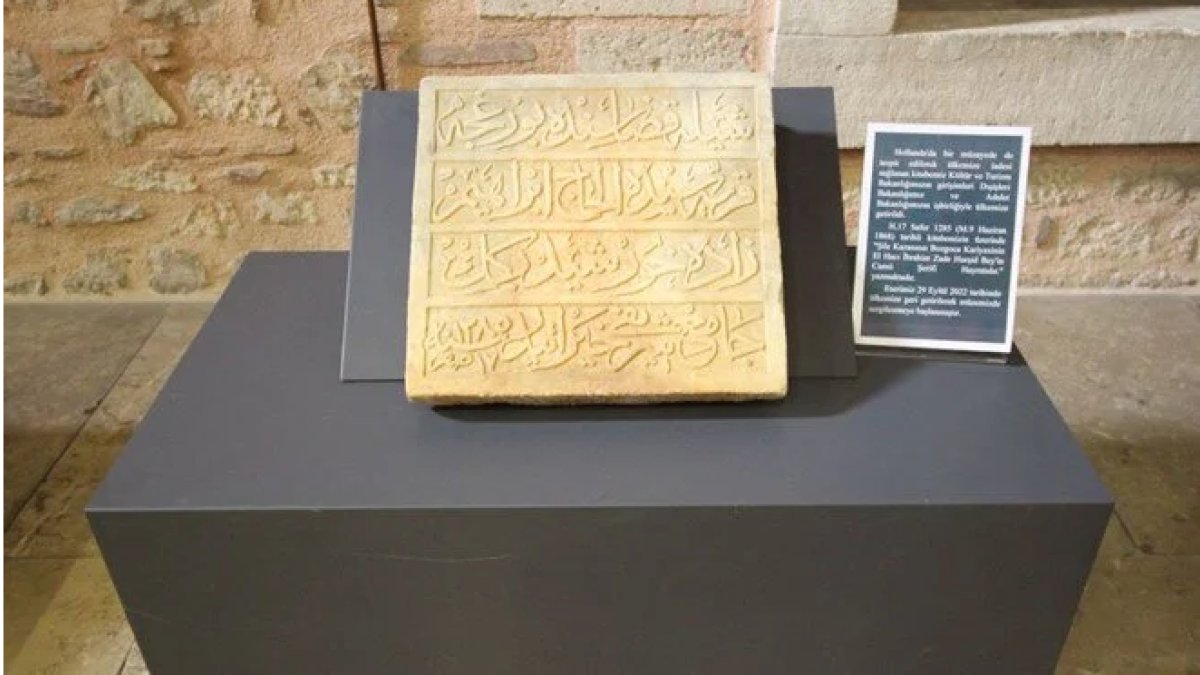 شيله قضاسنده بوزغجه
قريه سنده الحاج ابراهيم
زاده خورشيد بك
جامع شريفى خيراتيدر ١٢٨٥
Hollanda'da bir müzayede de
tespit edilerek ülkemize iadesi
sağlanan kitabemiz Kültür ve Turizm
Bakanlığımızın girişimleri Dışişleri
Bakanlığımız ve Adalet
Bakanlığımızın işbirliğiyle ülkemize
getirildi.
H.17 Safer 1285 (M.9 Haziran
1868) tarihli kitabemizin üzerinde
"Şile Kazasının Bozgoca Kariyesinin
El Hacı İbrahim Zade Hurşid Bey'in
Camii Şerifi Hayratıdır."
yazmaktadır.
Eserimiz 29 Eylül 2022 tarihinde
ülkemize geri getirilerek müzemizde
sergilenmeye başlanmıştır.